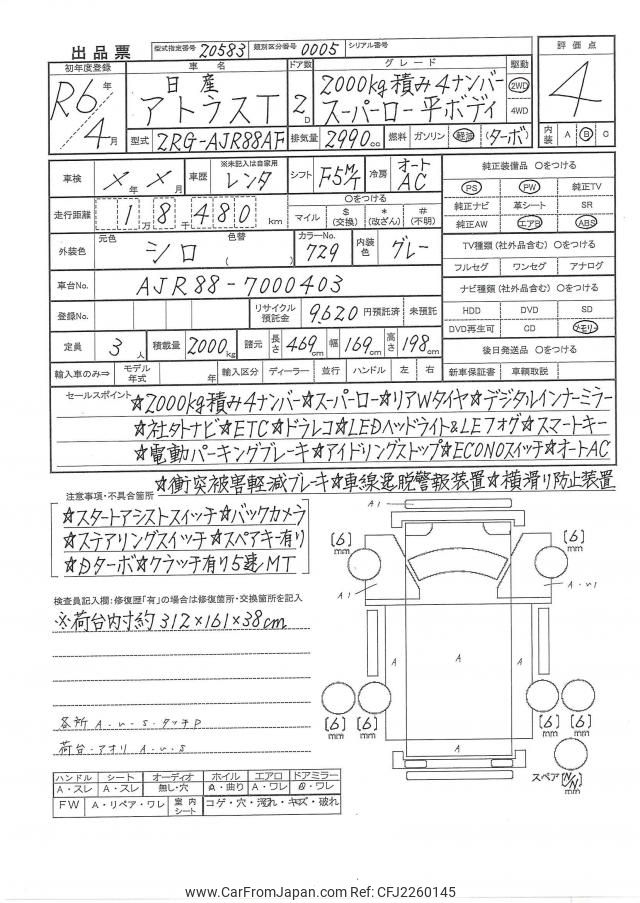 出品票 型式指定番号 20583 類別区分番号 0005 シリアル番号
初年度登録 車名 ドア数 グレード 駆動 評価点
R6年 4月
日産 アトラスT
2D
2000kg積み4ナンバー
スーパーロー平ボディ
2WD
4WD
4
型式 2RG-AJR88AF 排気量 2990cc 燃料 ガソリン 軽油 (ターボ)
内装 A B C
車検 ×年×月 車歴 ※未記入は自家用 レンタ シフト F5M/T 冷房 オートAC
走行距離 1万8千480km
○をつける
マイル $(交換) *(改ざん) #(不明)
外装色 元色 シロ 色替 ( ) カラーNo. 729 内装色 グレー
車台No. AJR88-7000403
登録No. リサイクル預託金 9,620円預託済 未預託
定員 3人 積載量 2000kg 諸元 長さ 469cm 幅 169cm 高さ 198cm
輸入車のみ⇒ モデル年式 年 輸入区分 ディーラー 並行 ハンドル 左 右
純正装備品 ○をつける
PS PW 純正TV
純正ナビ 革シート SR
純正AW エアB ABS
TV種類(社外品含む) ○をつける
フルセグ ワンセグ アナログ
ナビ種類(社外品含む) ○をつける
HDD DVD SD
DVD再生可 CD メモリー
後日発送品 ○をつける
新車保証書 車輌取説
セールスポイント
☆2000kg積み4ナンバー☆スーパーロー☆リアWタイヤ☆デジタルインナーミラー
☆社外ナビ☆ETC☆ドラレコ☆LEDヘッドライト&LEフォグ☆スマートキー
☆電動パーキングブレーキ☆アイドリングストップ☆ECONOスイッチ☆オートAC
☆衝突被害軽減ブレーキ☆車線逸脱警報装置☆横滑り防止装置
注意事項・不具合箇所
☆スタートアシストスイッチ☆バックカメラ
☆ステアリングスイッチ☆スペアキー有り
☆Dターボ☆クラッチ有り5速MT
検査員記入欄:修復歴「有」の場合は修復箇所・交換箇所を記入
※荷台内寸約312×161×38cm
各所 A・U・S・タッチP
荷台・アオリ A・U・S
ハンドル シート オーディオ ホイル エアロ ドアミラー
A・スレ A・スレ 無し・穴 A・曲り A・ワレ A・ワレ
FW A・リペア・ワレ 室内シート コゲ・穴・汚れ・キズ・破れ
A1
[6]mm
[6]mm
A1
A・U1
A
A
A
[6]mm
[6]mm
[6]mm
[6]mm
A
スペア [N/N]mm
www.CarFromJapan.com Ref: CFJ2260145